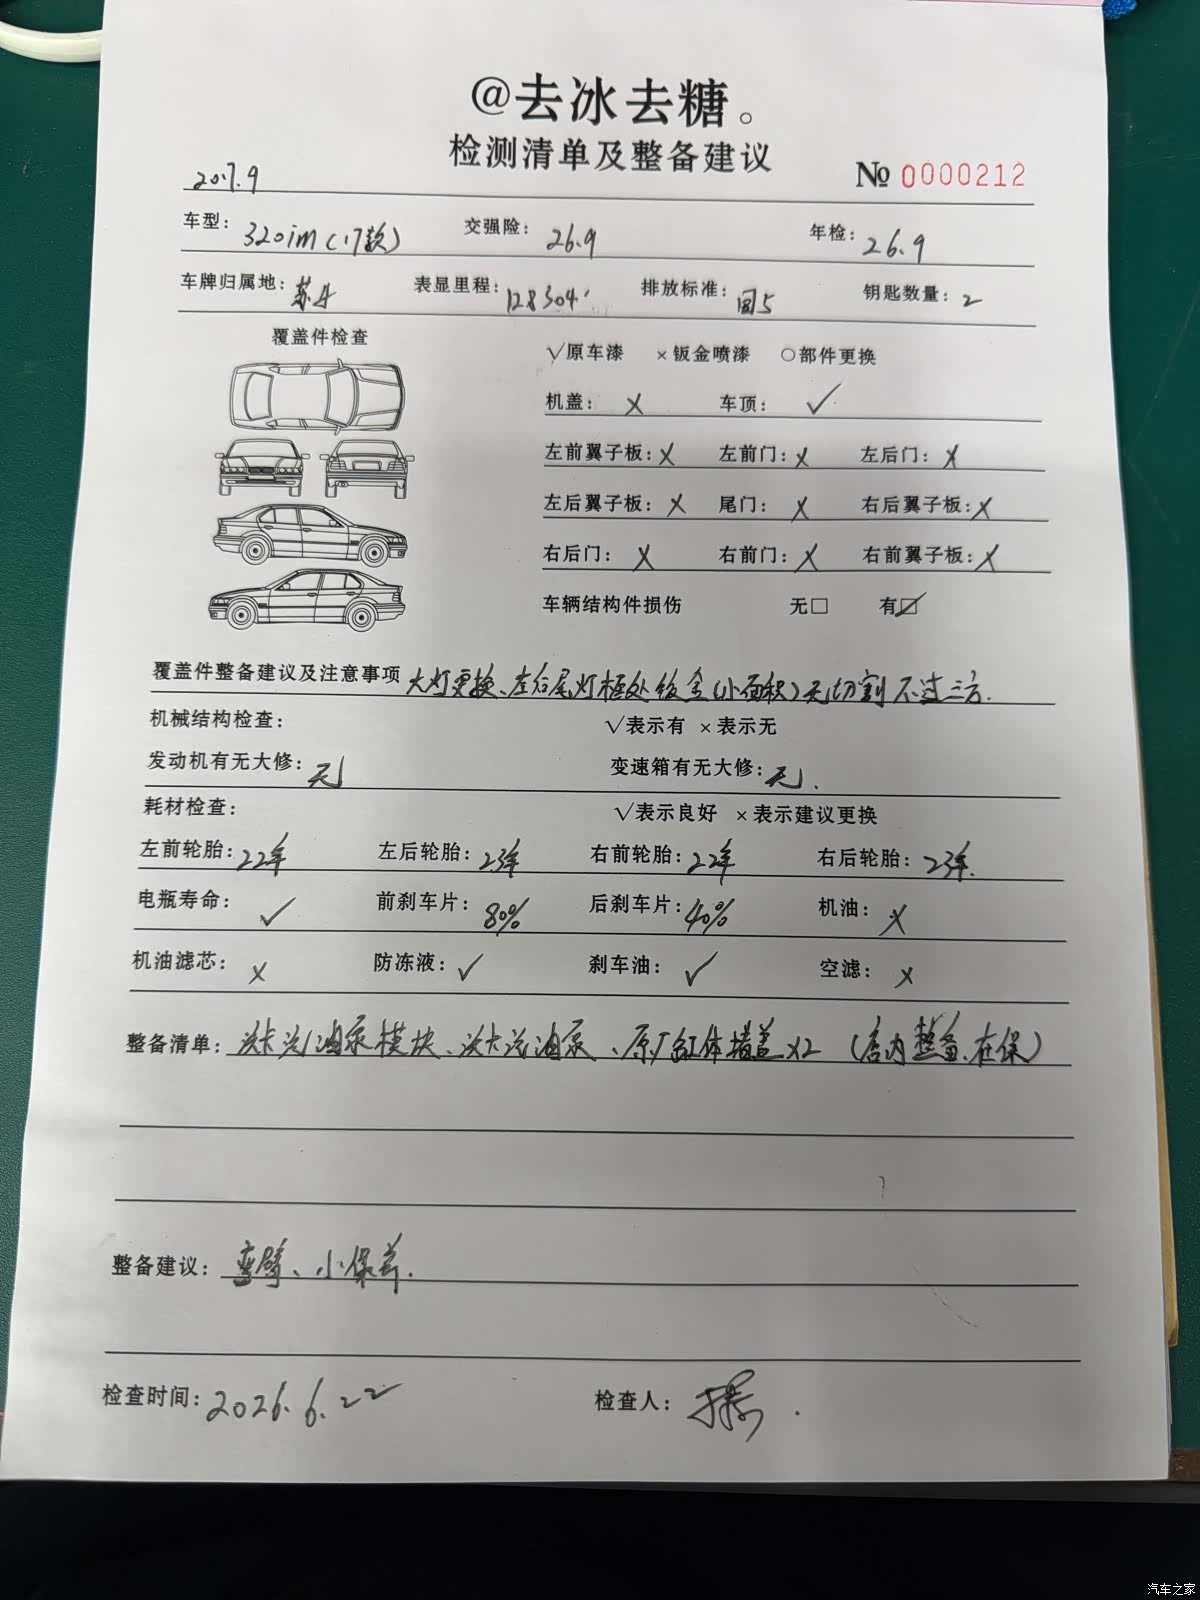 @去冰去糖。
检测清单及整备建议
No 0000212
2017.9
车型: 320im(17款) 交强险: 26.9 年检: 26.9
车牌归属地: 苏 表显里程: 128304 排放标准: 国5 钥匙数量: 2
覆盖件检查
√原车漆 ×钣金喷漆 ○部件更换
机盖: × 车顶: √
左前翼子板: × 左前门: × 左后门: ×
左后翼子板: × 尾门: × 右后翼子板: ×
右后门: × 右前门: × 右前翼子板: ×
车辆结构件损伤 无□ 有☑
覆盖件整备建议及注意事项 大灯更换、左后尾灯框处钣金(小面积)无切割不过三方.
机械结构检查: √表示有 ×表示无
发动机有无大修: 无 变速箱有无大修: 无.
耗材检查: √表示良好 ×表示建议更换
左前轮胎: 22年 左后轮胎: 23年 右前轮胎: 22年 右后轮胎: 23年.
电瓶寿命: √ 前刹车片: 80% 后刹车片: 40% 机油: ×
机油滤芯: × 防冻液: √ 刹车油: √ 空滤: ×
整备清单: 汽油泵模块、汽油泵、原厂缸体堵盖x2 (店内整备、在保)
整备建议: 弯臂、小保养.
检查时间: 2026.6.22 检查人:
汽车之家